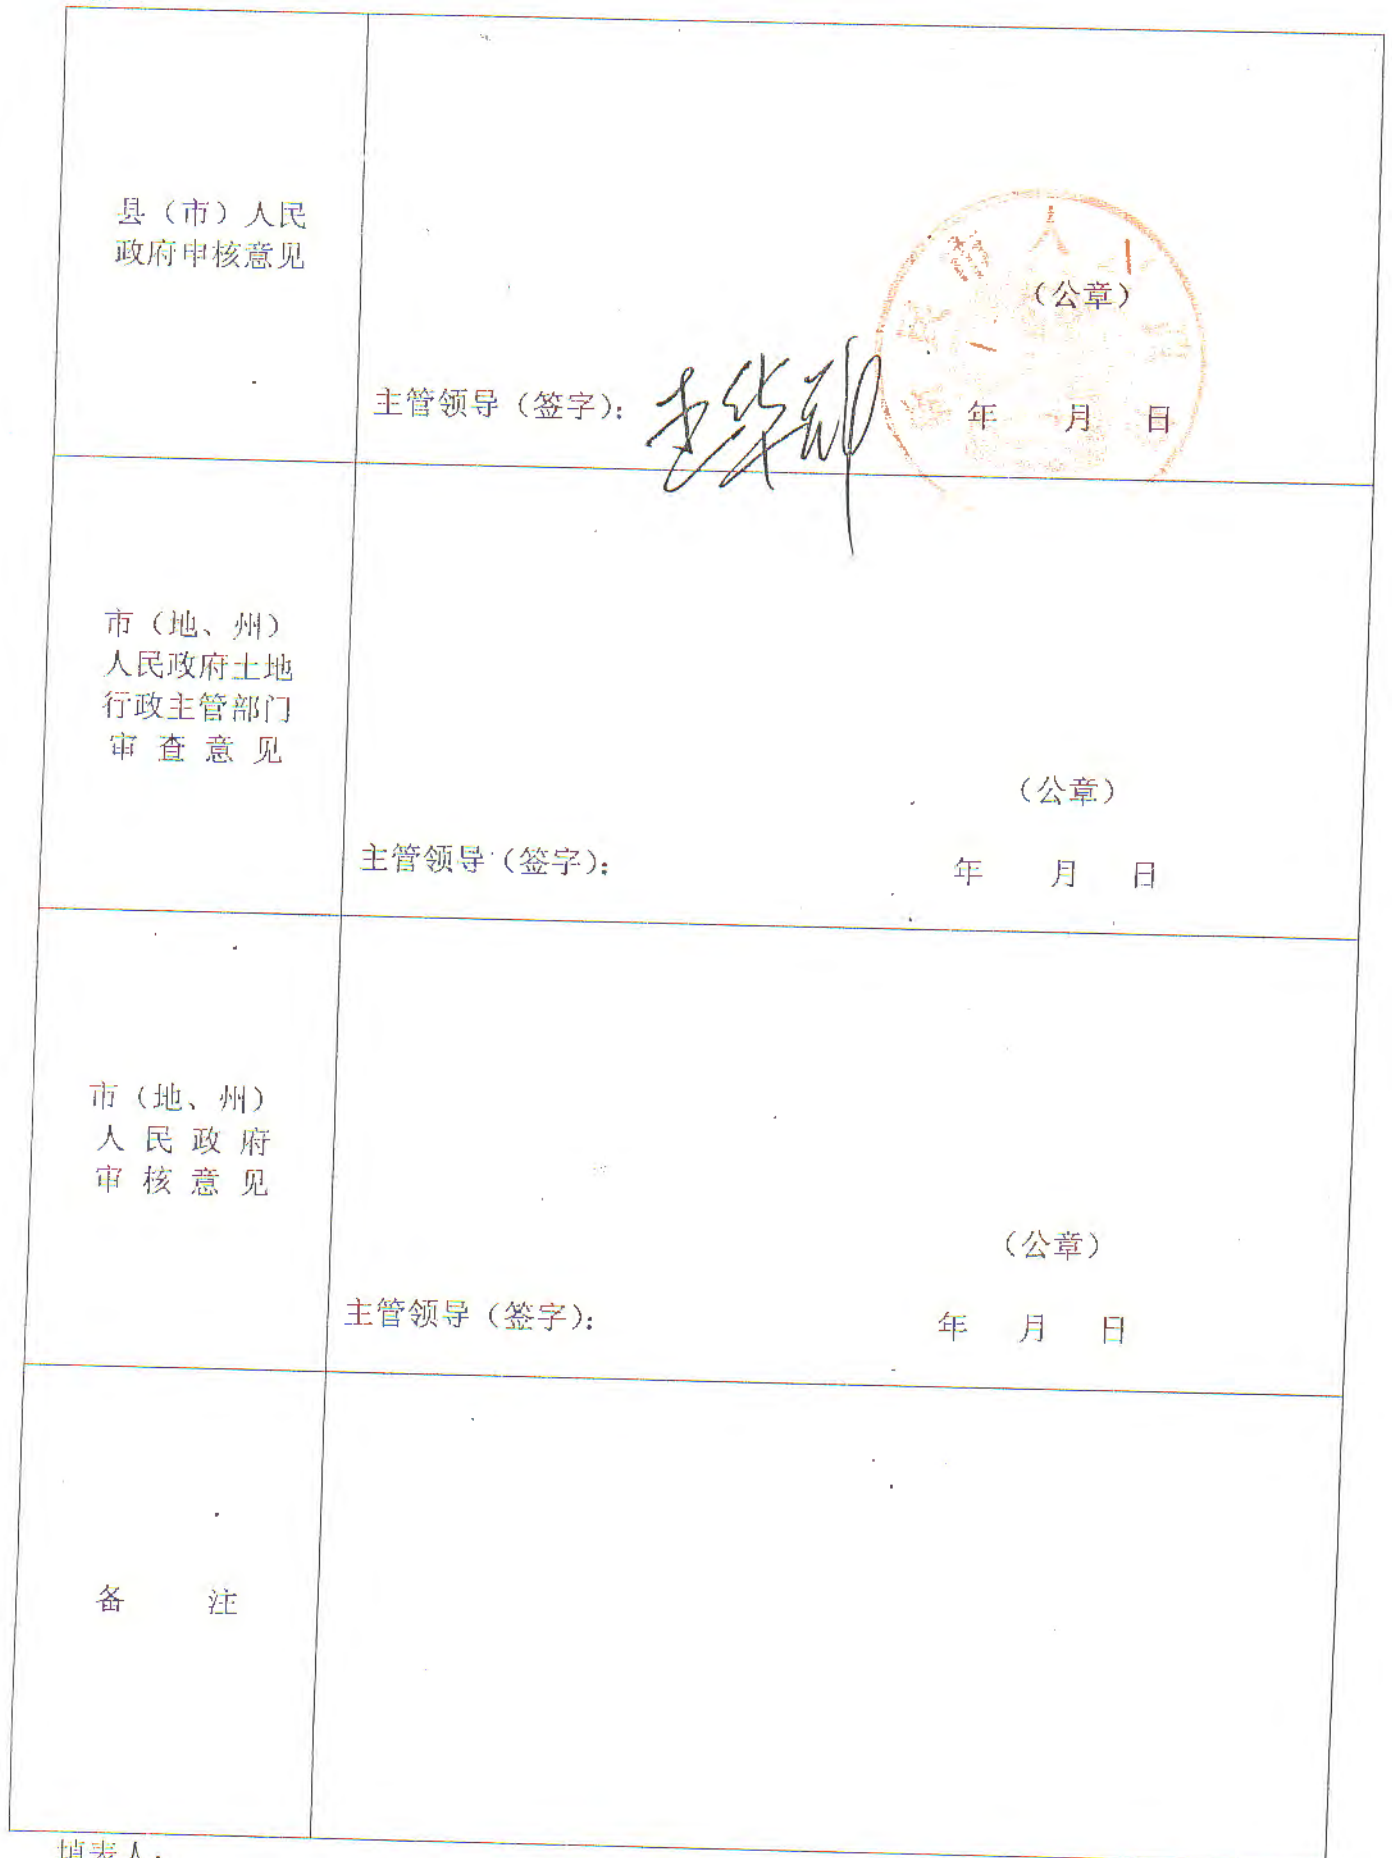 县（市）人民
政府审核意见
（公章）
主管领导（签字）：
年 月 日
市（地、州）
人民政府土地
行政主管部门
审查意见
（公章）
主管领导（签字）：
年 月 日
市（地、州）
人民政府
审核意见
（公章）
主管领导（签字）：
年 月 日
备 注
填表人：